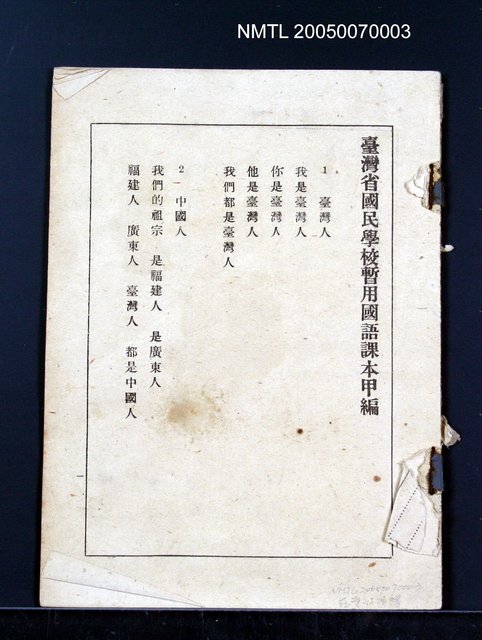 NMTL 20050070003
臺灣省國民學校暫用國語課本甲編
1 臺灣人
我是臺灣人
你是臺灣人
他是臺灣人
我們都是臺灣人
2 中國人
我們的祖宗 是福建人 是廣東人
福建人 廣東人 臺灣人 都是中國人
一